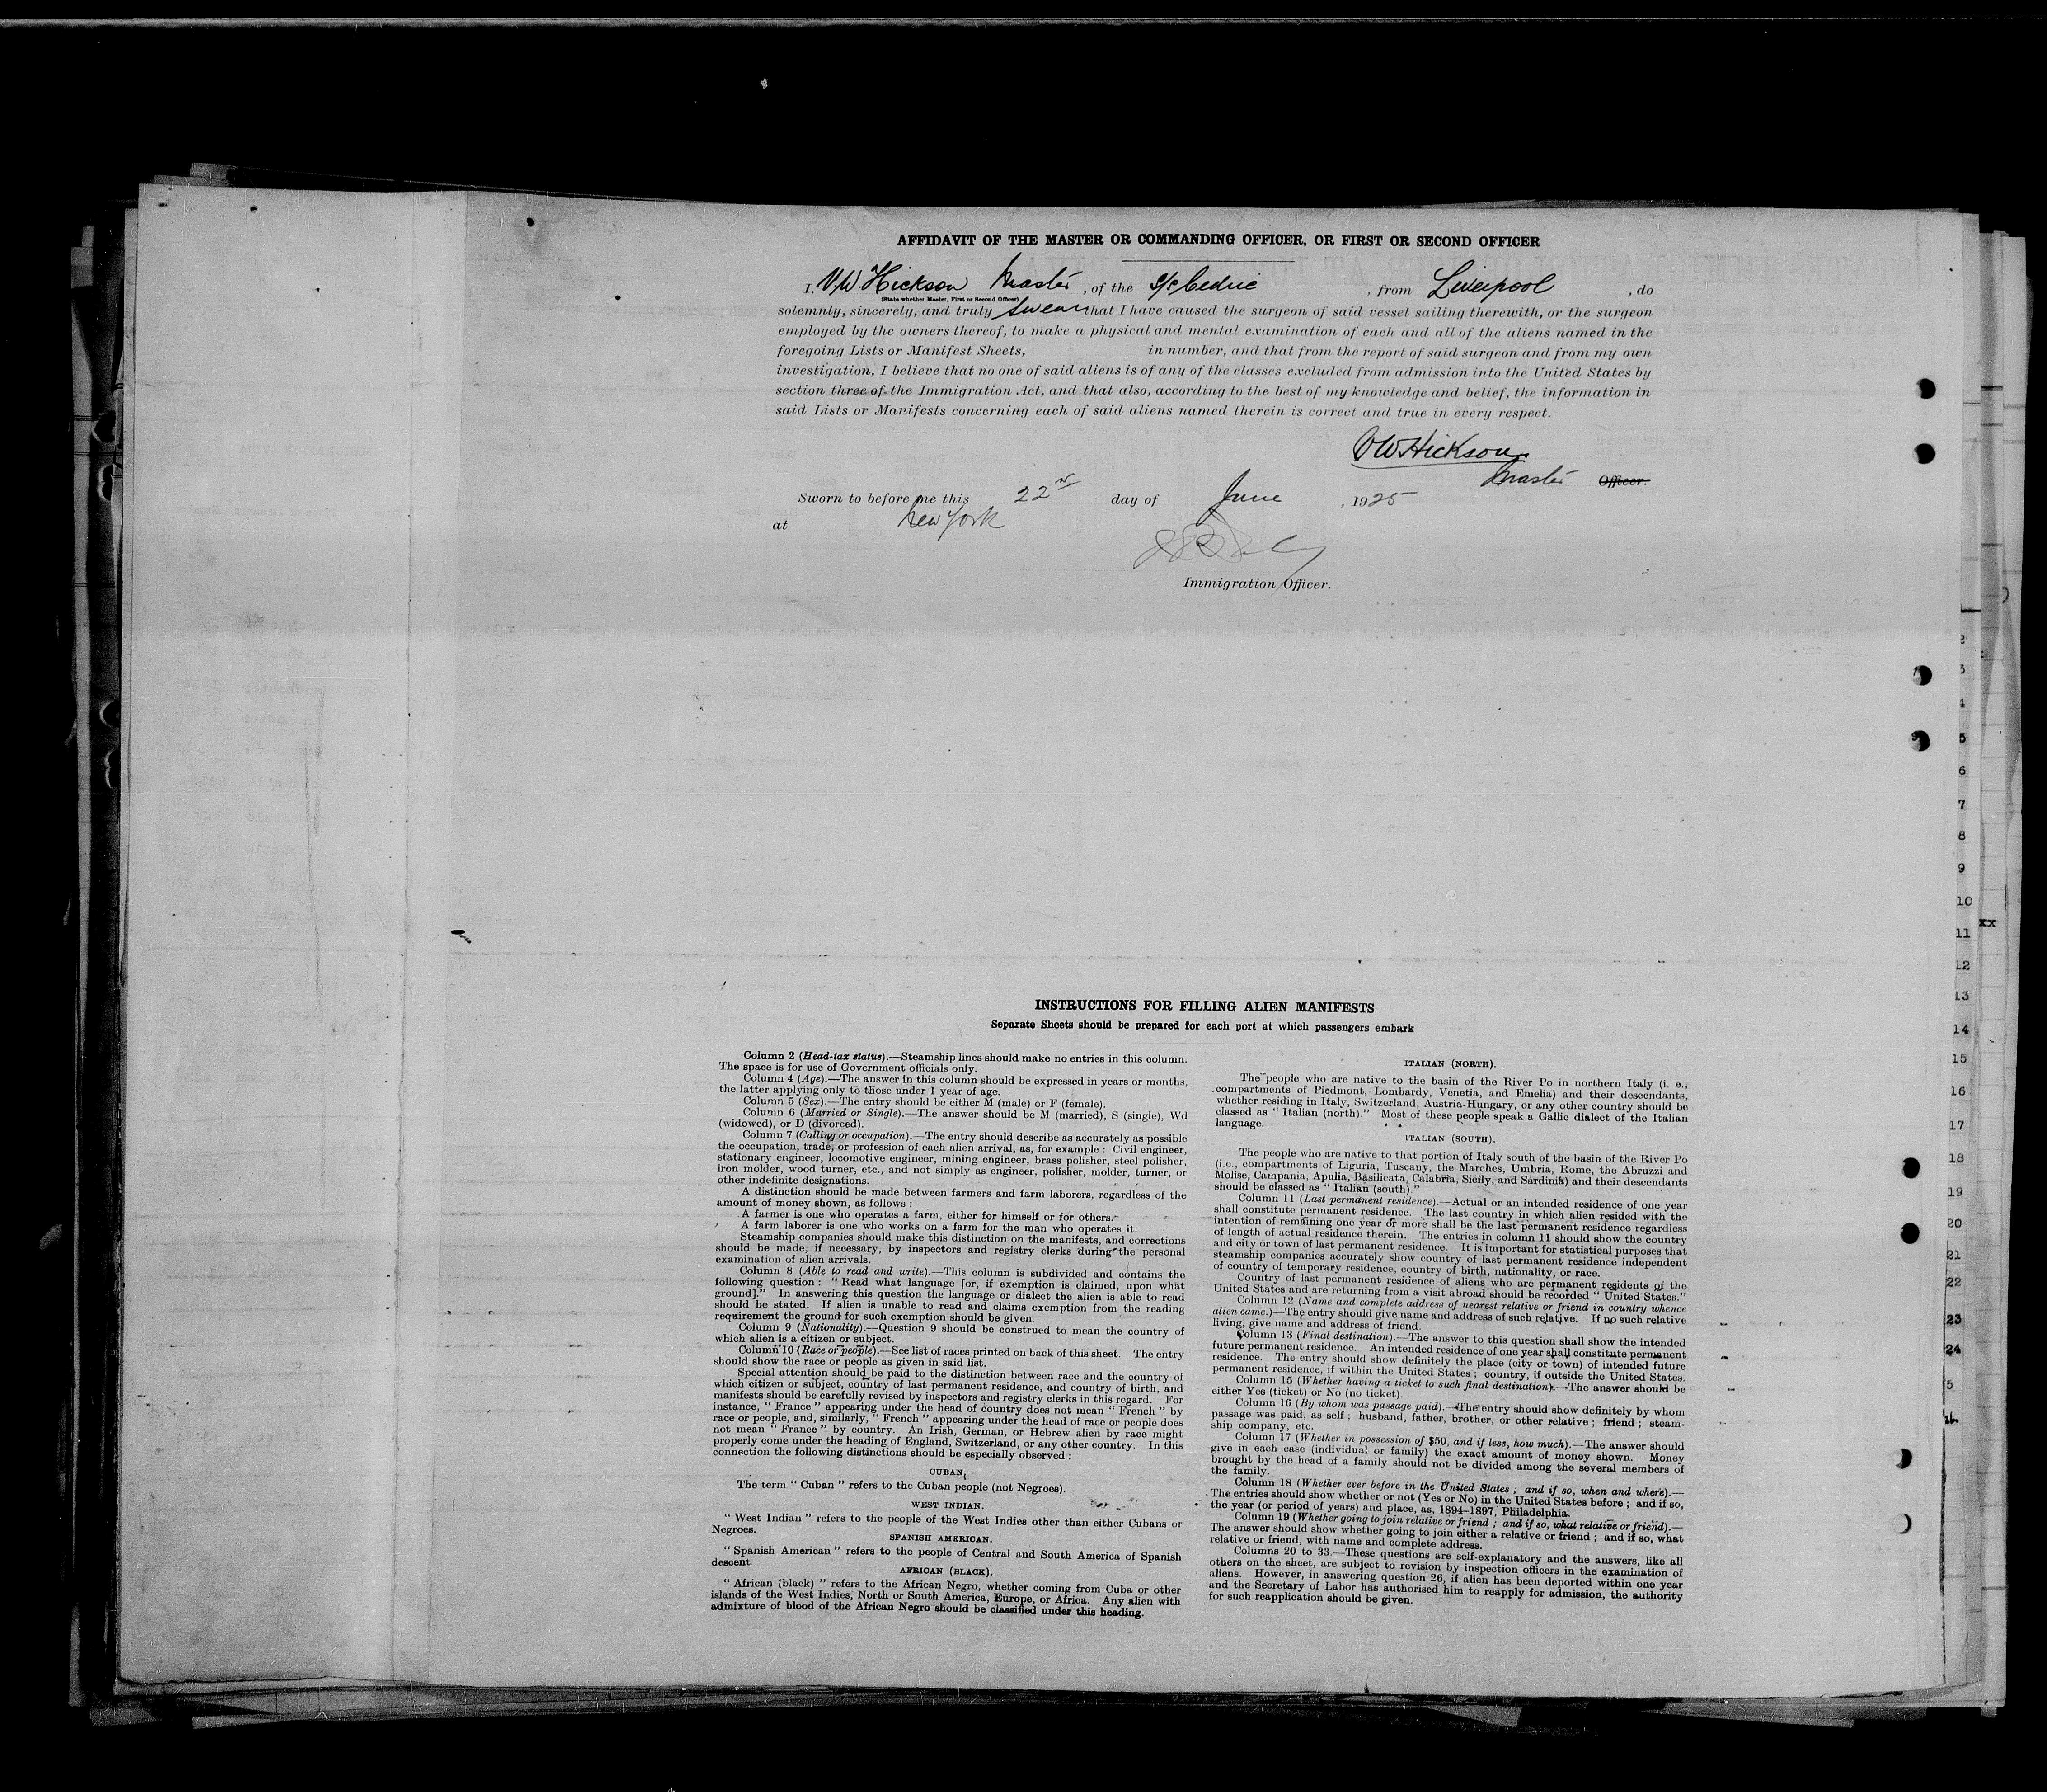 AFFIDAVIT OF THE MASTER OR COMMANDING OFFICER, OR FIRST OR SECOND OFFICER
I, V.W. Hickson Master, of the S/S Cedric, from Liverpool, do
(State whether Master, First or Second Officer)
solemnly, sincerely, and truly swear that I have caused the surgeon of said vessel sailing therewith, or the surgeon
employed by the owners thereof, to make a physical and mental examination of each and all of the aliens named in the
foregoing Lists or Manifest Sheets, in number, and that from the report of said surgeon and from my own
investigation, I believe that no one of said aliens is of any of the classes excluded from admission into the United States by
section three of the Immigration Act, and that also, according to the best of my knowledge and belief, the information in
said Lists or Manifests concerning each of said aliens named therein is correct and true in every respect.
VW Hickson
Master Officer.
Sworn to before me this 22nd day of June, 1925
at New York
Immigration Officer.
INSTRUCTIONS FOR FILLING ALIEN MANIFESTS
Separate Sheets should be prepared for each port at which passengers embark
Column 2 (Head-tax status).—Steamship lines should make no entries in this column.
The space is for use of Government officials only.
Column 4 (Age).—The answer in this column should be expressed in years or months,
the latter applying only to those under 1 year of age.
Column 5 (Sex).—The entry should be either M (male) or F (female).
Column 6 (Married or Single).—The answer should be M (married), S (single), Wd
(widowed), or D (divorced).
Column 7 (Calling or occupation).—The entry should describe as accurately as possible
the occupation, trade, or profession of each alien arrival, as, for example: Civil engineer,
stationary engineer, locomotive engineer, mining engineer, brass polisher, steel polisher,
iron molder, wood turner, etc., and not simply as engineer, polisher, molder, turner, or
other indefinite designations.
A distinction should be made between farmers and farm laborers, regardless of the
amount of money shown, as follows:
A farmer is one who operates a farm, either for himself or for others.
A farm laborer is one who works on a farm for the man who operates it.
Steamship companies should make this distinction on the manifests, and corrections
should be made, if necessary, by inspectors and registry clerks during the personal
examination of alien arrivals.
Column 8 (Able to read and write).—This column is subdivided and contains the
following question: "Read what language [or, if exemption is claimed, upon what
ground]." In answering this question the language or dialect the alien is able to read
should be stated. If alien is unable to read and claims exemption from the reading
requirement the ground for such exemption should be given.
Column 9 (Nationality).—Question 9 should be construed to mean the country of
which alien is a citizen or subject.
Column 10 (Race or people).—See list of races printed on back of this sheet. The entry
should show the race or people as given in said list.
Special attention should be paid to the distinction between race and the country of
which citizen or subject, country of last permanent residence, and country of birth, and
manifests should be carefully revised by inspectors and registry clerks in this regard. For
instance, "France" appearing under the head of country does not mean "French" by
race or people, and, similarly, "French" appearing under the head of race or people does
not mean "France" by country. An Irish, German, or Hebrew alien by race might
properly come under the heading of England, Switzerland, or any other country. In this
connection the following distinctions should be especially observed:
CUBAN.
The term "Cuban" refers to the Cuban people (not Negroes).
WEST INDIAN.
"West Indian" refers to the people of the West Indies other than either Cubans or
Negroes.
SPANISH AMERICAN.
"Spanish American" refers to the people of Central and South America of Spanish
descent
AFRICAN (BLACK).
"African (black)" refers to the African Negro, whether coming from Cuba or other
islands of the West Indies, North or South America, Europe, or Africa. Any alien with
admixture of blood of the African Negro should be classified under this heading.
ITALIAN (NORTH).
The people who are native to the basin of the River Po in northern Italy (i. e.,
compartments of Piedmont, Lombardy, Venetia, and Emelia) and their descendants,
whether residing in Italy, Switzerland, Austria-Hungary, or any other country should be
classed as "Italian (north)." Most of these people speak a Gallic dialect of the Italian
language.
ITALIAN (SOUTH).
The people who are native to that portion of Italy south of the basin of the River Po
(i.e., compartments of Liguria, Tuscany, the Marches, Umbria, Rome, the Abruzzi and
Molise, Campania, Apulia, Basilicata, Calabria, Sicily, and Sardinia) and their descendants
should be classed as "Italian (south)."
Column 11 (Last permanent residence).—Actual or an intended residence of one year
shall constitute permanent residence. The last country in which alien resided with the
intention of remaining one year or more shall be the last permanent residence regardless
of length of actual residence therein. The entries in column 11 should show the country
and city or town of last permanent residence. It is important for statistical purposes that
steamship companies accurately show country of last permanent residence independent
of country of temporary residence, country of birth, nationality, or race.
Country of last permanent residence of aliens who are permanent residents of the
United States and are returning from a visit abroad should be recorded "United States."
Column 12 (Name and complete address of nearest relative or friend in country whence
alien came.)—The entry should give name and address of such relative. If no such relative
living, give name and address of friend.
Column 13 (Final destination).—The answer to this question shall show the intended
future permanent residence. An intended residence of one year shall constitute permanent
residence. The entry should show definitely the place (city or town) of intended future
permanent residence, if within the United States; country, if outside the United States.
Column 15 (Whether having a ticket to such final destination).—The answer should be
either Yes (ticket) or No (no ticket).
Column 16 (By whom was passage paid).—The entry should show definitely by whom
passage was paid, as self; husband, father, brother, or other relative; friend; steam-
ship company, etc.
Column 17 (Whether in possession of $50, and if less, how much).—The answer should
give in each case (individual or family) the exact amount of money shown. Money
brought by the head of a family should not be divided among the several members of
the family.
Column 18 (Whether ever before in the United States; and if so, when and where).—
The entries should show whether or not (Yes or No) in the United States before; and if so,
the year (or period of years) and place, as, 1894-1897, Philadelphia.
Column 19 (Whether going to join relative or friend; and if so, what relative or friend).—
The answer should show whether going to join either a relative or friend; and if so, what
relative or friend, with name and complete address.
Columns 20 to 33.—These questions are self-explanatory and the answers, like all
others on the sheet, are subject to revision by inspection officers in the examination of
aliens. However, in answering question 26, if alien has been deported within one year
and the Secretary of Labor has authorised him to reapply for admission, the authority
for such reapplication should be given.
2
3
4
5
6
7
8
9
10
xx
11
12
13
14
15
16
17
18
19
20
21
22
23
24
5